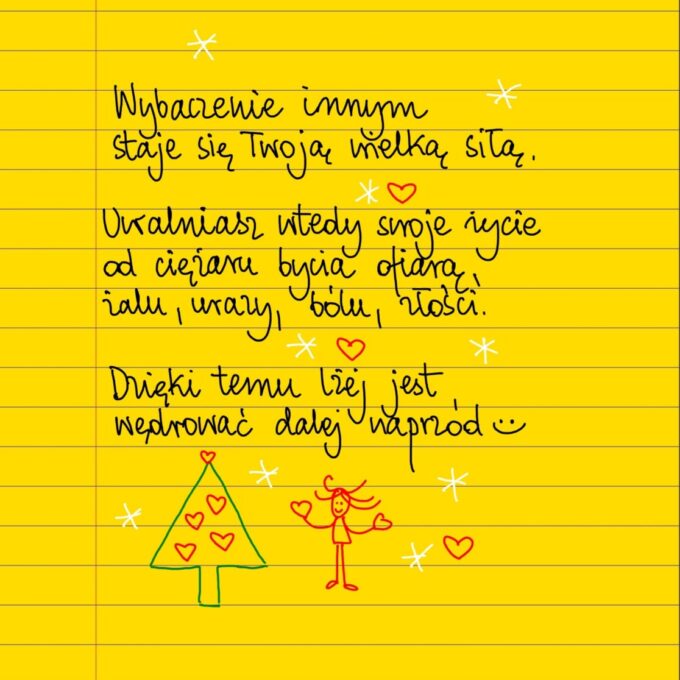 Wybaczenie innym
staje się Twoją wielką siłą.
Uwalniasz wtedy swoje życie
od ciężaru bycia ofiarą,
żalu, urazy, bólu, złości.
Dzięki temu lżej jest
wędrować dalej naprzód :)